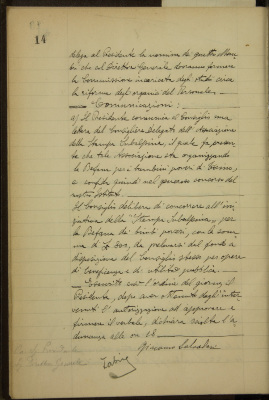 14
delega al Presidente la nomina di quattro Mem-
bri che col Direttore Generale dovranno formare
la Commissione incaricata degli studi circa
la riforma degli organici del Personale.
Comunicazioni:
a) Il Presidente comunica al Consiglio una
lettera del Consigliere Delegato dell'Associazione
della Stampa Subalpina, il quale fa presen-
te che tale Associazione sta organizzando
la Befana pei bambini poveri di Torino,
e confida quindi nel generoso concorso del
nostro Istituto.
Il Consiglio delibera di concorrere all'ini-
ziativa della "Stampa Subalpina", per
la Befana dei bimbi poveri, con la som-
ma di £ 300, da prelevarsi dal fondo a
disposizione del Consiglio stesso per opere
di beneficenza e di utilità pubblica.
Esaurito così l'ordine del giorno, il
Presidente, dopo aver ottenuto dagli inter-
venuti l'autorizzazione ad approvare e
firmare il verbale, dichiara sciolta l'a-
dunanza alle ore